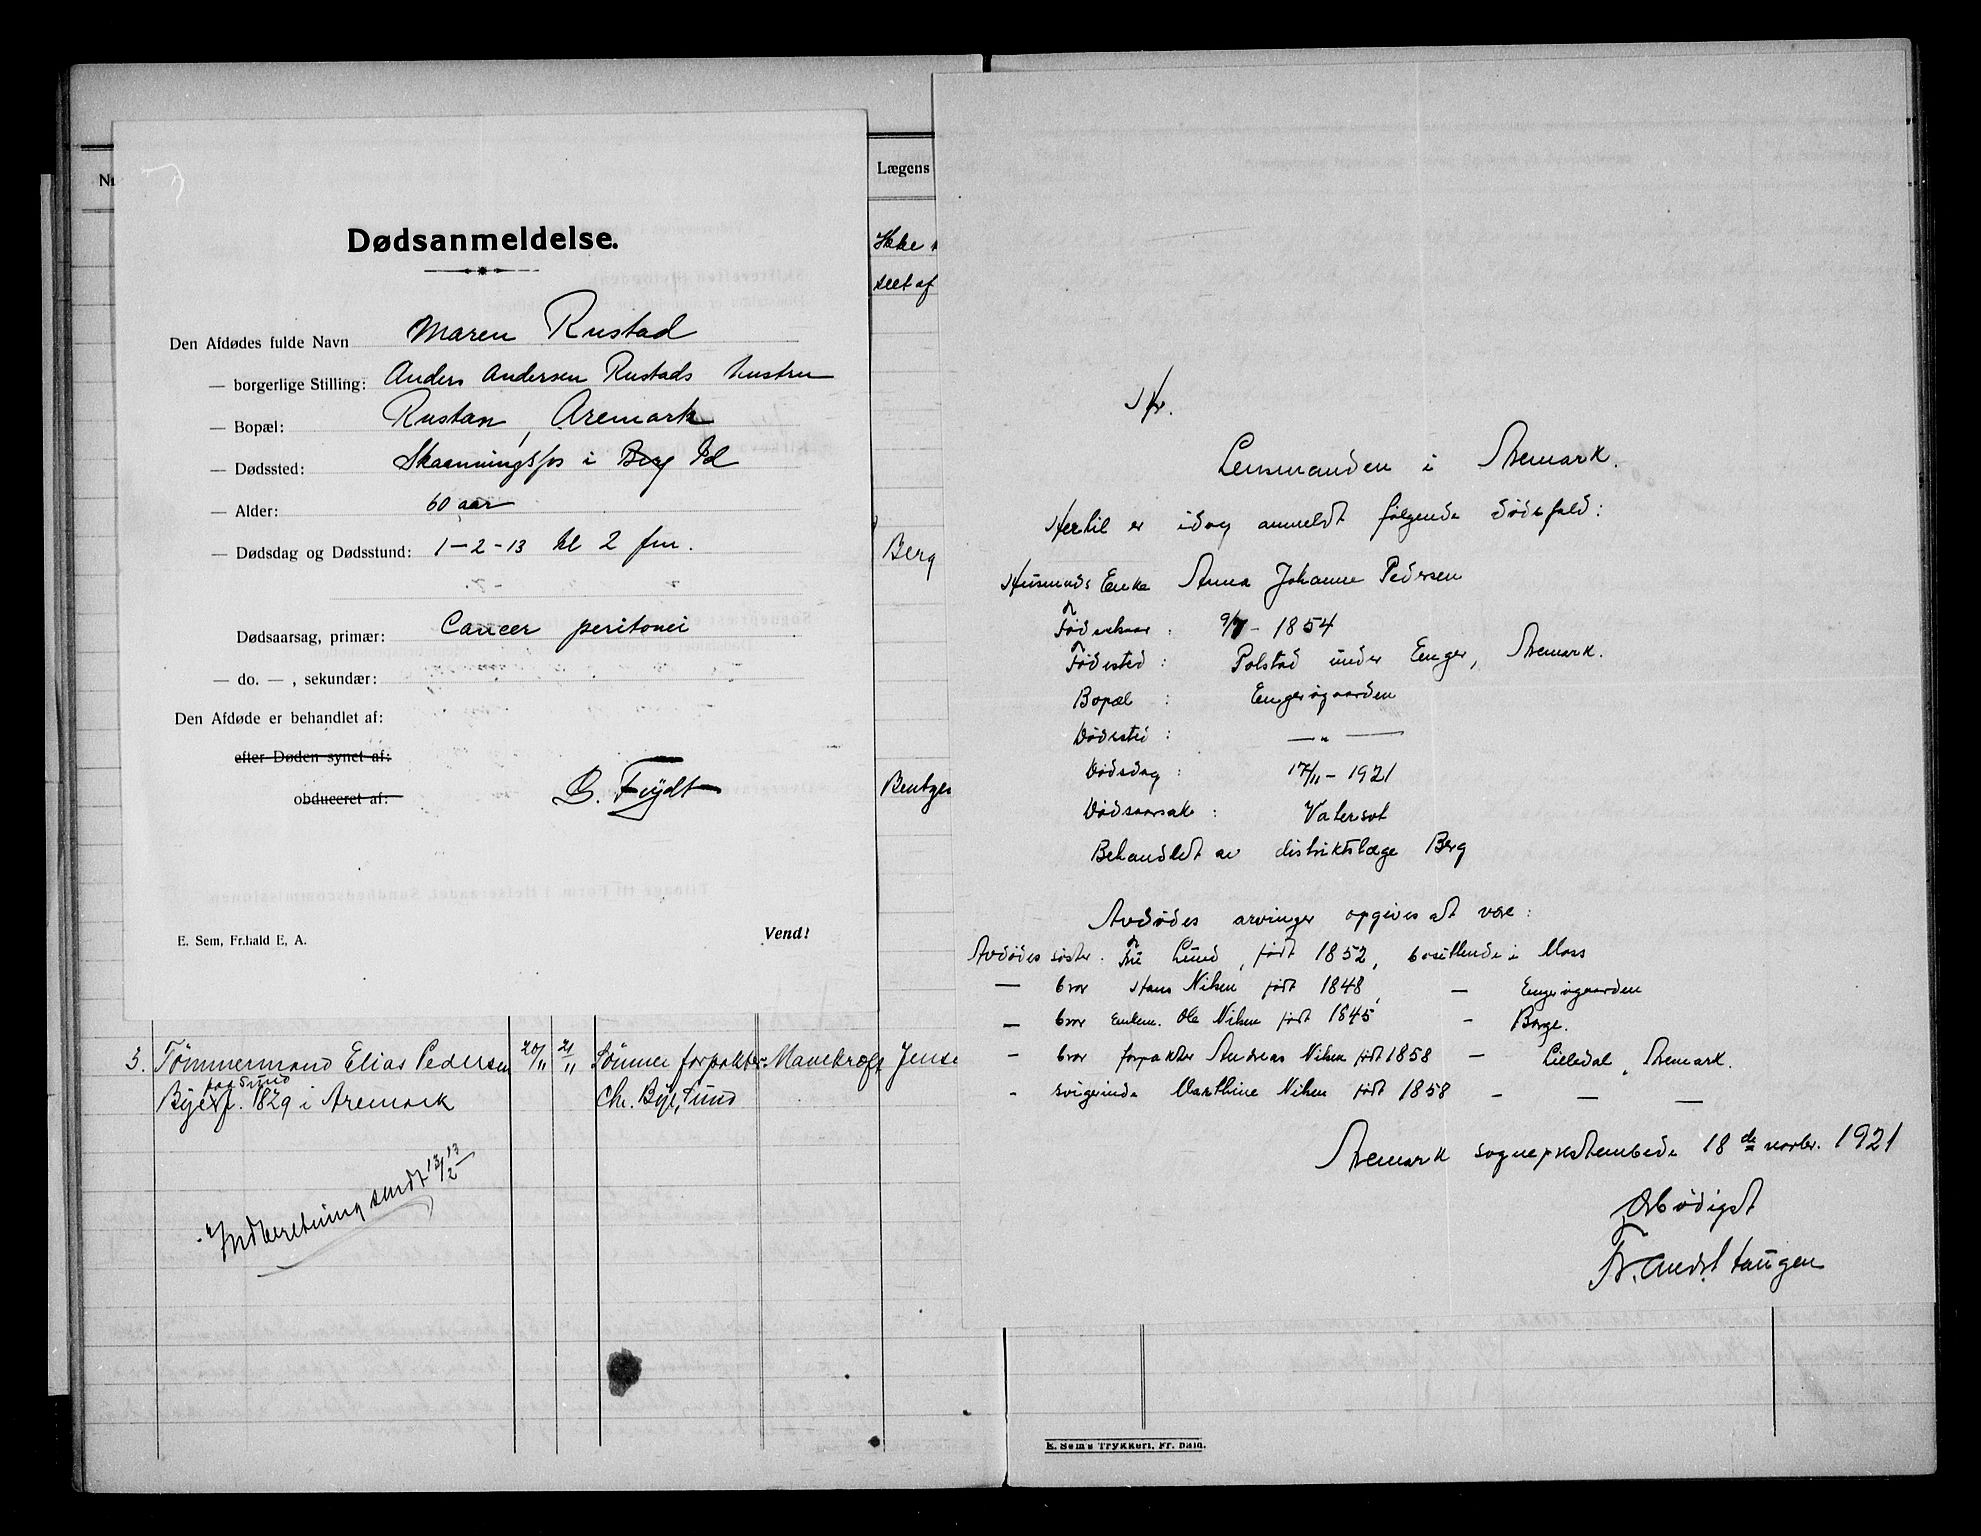 Nr
Lægens
Ikke
seet af
Berg
Bentzes
Dødsanmeldelse.
Den Afdødes fulde Navn Maren Rustad
— borgerlige Stilling: Anders Andersen Rustads hustru
— Bopæl: Rustan, Aremark
— Dødssted: Skaanningsfos i Berg Id
— Alder: 60 aar
— Dødsdag og Dødsstund: 1-2-13 kl 2 fm.
Dødsaarsag, primær: Cancer peritonei
— do. — , sekundær:
Den Afdøde er behandlet af:
efter Døden synet af:
obduceret af:
B. Feydt
E. Sem, Fr.hald E, A.
Vend!
3. Tømmermand Elias Pedersen 20/11 21/11 Sønnen forpakter Manekræft Jense
paa Sund
Bye f. 1829 i Aremark Chr. Bye, Sund
Indberetning sendt 12/2 13
Hr.
Lensmanden i Aremark.
Hertil er idag anmeldt følgende dødsfald:
Husmands Enke Anna Johanne Pedersen
Fødselsaar : 9/7 - 1854
Fødested : Polstad under Enger, Aremark.
Bopæl : Engerigaarden
Dødssted : — " —
Dødsdag : 17/11 - 1921
Dødsaarsak : Vatersot
Behandlet av distriktslæge Berg
Avdødes arvinger opgives at være:
Avdødes søster. Fru Lund, født 1852, bosittende i Moss
— bror Hans Nilsen født 1848, — Engerigaarden
— bror Enkem. Ole Nilsen født 1845 - Borge.
- bror forpakter Andreas Nilsen født 1858 - Lilledal, Aremark.
- svigerinde Marthine Nilsen født 1858 - — —
Aremark sogneprestembede 18de novbr. 1921
Ærbødigst
Fr. Andr. Haugen
E. Sem's Trykkeri, Fr. hald.